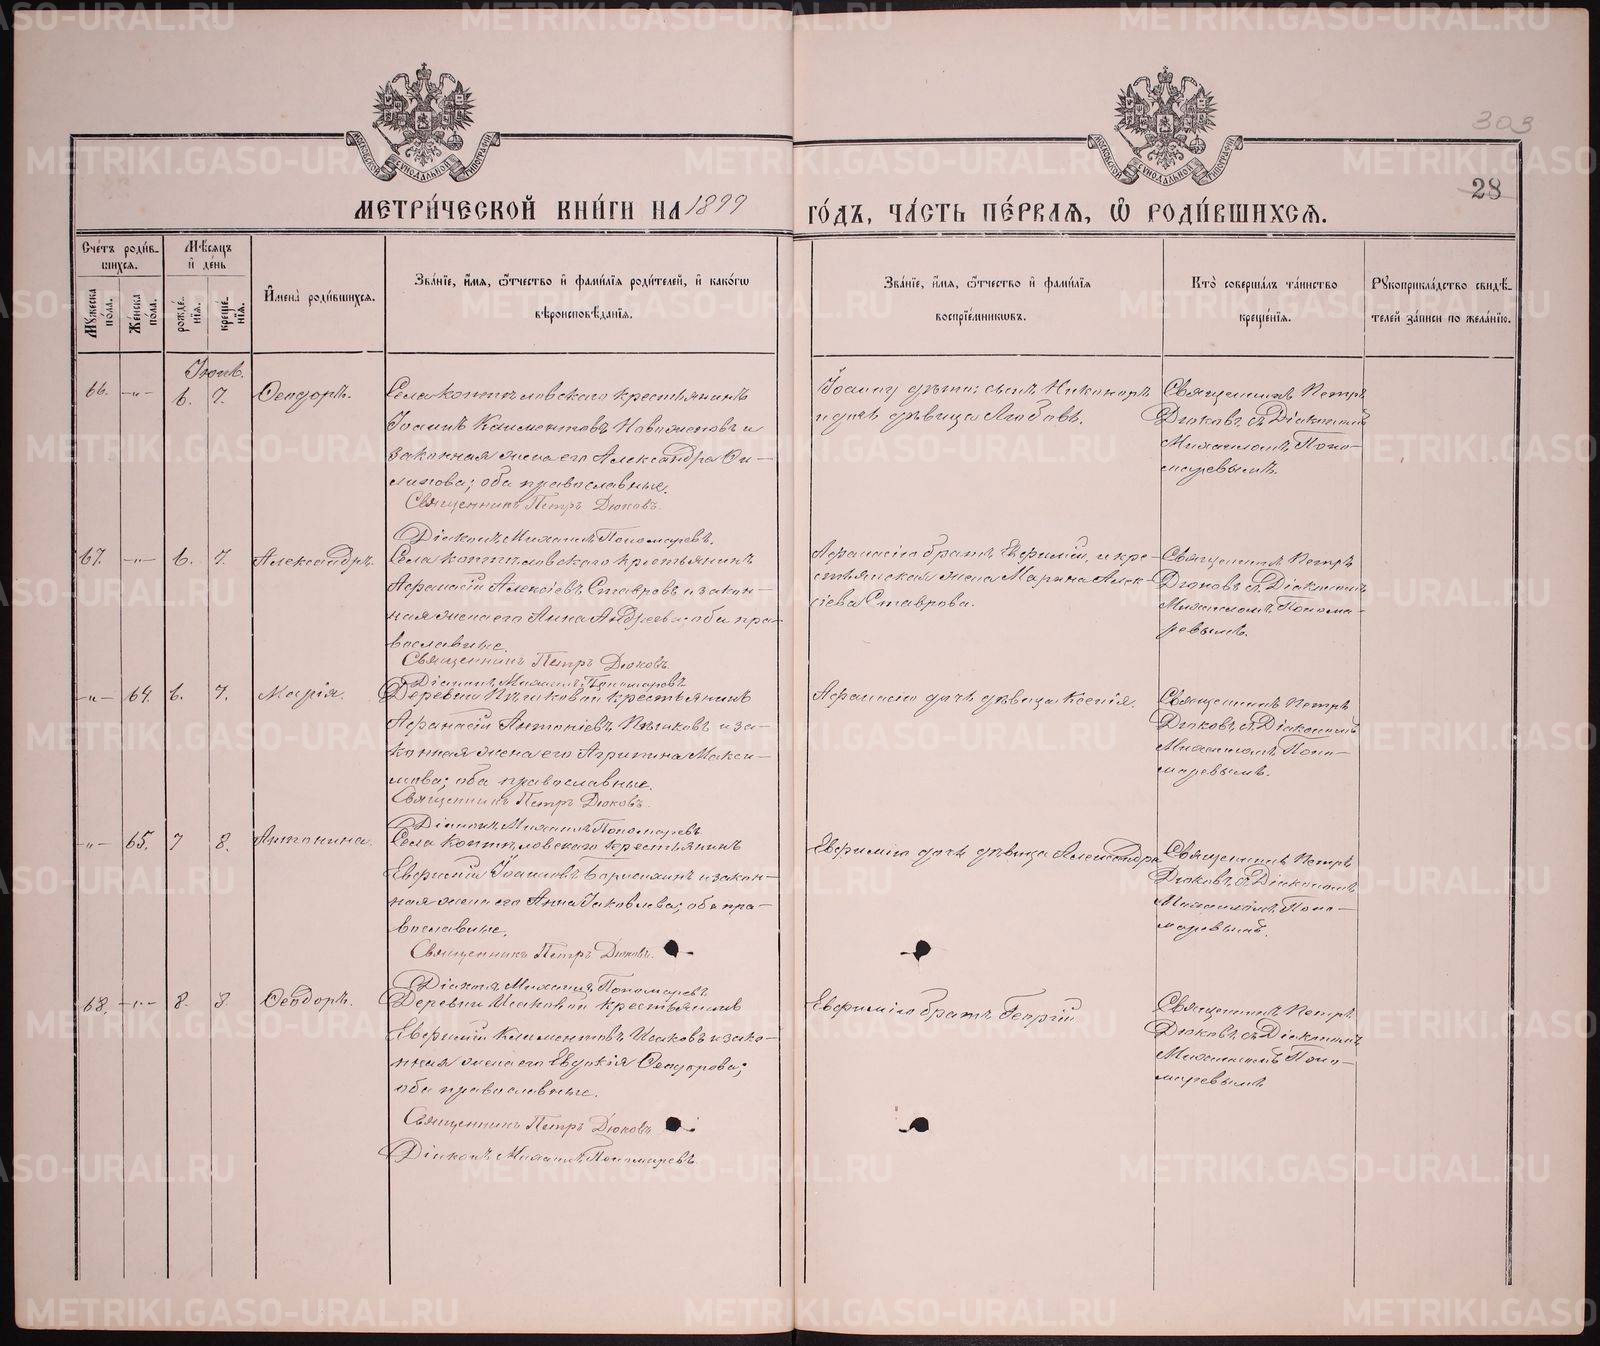 303
28
МОСКОВСКОЙ СѴНОДАЛЬНОЙ ТИПОГРАФІИ
МОСКОВСКОЙ СѴНОДАЛЬНОЙ ТИПОГРАФІИ
МЕТРИ́ЧЕСКОЙ КНИ́ГИ НА 1899 ГО́ДЪ, ЧА́СТЬ ПЕ́РВАѦ, Ѡ҆ РОДИ́ВШИХСѦ.
Сче́тъ роди́в-
шихсѧ.
Мѣ́сѧцъ
и҆ де́нь
Мꙋ́жеска
по́ла.
Же́нска
по́ла.
рожде́-
нїѧ.
креще́-
нїѧ.
И҆мена̀ роди́вшихсѧ.
Зва́нїе, и҆́мѧ, ѻ҆́тчество и҆ фами́лїѧ роди́телей, и҆ како́гѡ
вѣроисповѣ́данїѧ.
Зва́нїе, и҆́мѧ, ѻ҆́тчество и҆ фами́лїѧ
воспрїе́мникѡвъ.
Кто̀ соверша́лъ та́инство
креще́нїѧ.
Рꙋкоприкла́дство свидѣ́-
телей за́писи по жела́нїю.
Іюнь.
66. -„- 6. 7. Ѳеодоръ.
Села Коптѣловскаго крестьянинъ
Іоаннъ Климентовъ Новоженовъ и
законная жена его Александра Фи-
липова; оба православные.
Священникъ Петръ Дюковъ.
Діаконъ Михаилъ Пономаревъ.
Іоанну дѣти: сынъ Никаноръ
и дочь дѣвица Любовь.
Священникъ Петръ
Дюковъ съ Діакономъ
Михаиломъ Поно-
маревымъ.
67. -„- 6. 7. Александръ.
Села Коптѣловскаго крестьянинъ
Афанасій Алексіевъ Ставровъ и закон-
ная жена его Анна Андреева; оба пра-
вославные.
Священникъ Петръ Дюковъ.
Діаконъ Михаилъ Пономаревъ
Афанасію братъ Евфимій, и кре-
стьянская жена Марина Алек-
сіева Ставрова.
Священникъ Петръ
Дюковъ съ Діакономъ
Михаиломъ Понома-
ревымъ.
-„- 64. 6. 7. Марія.
Деревни Исаковой крестьянинъ
Афанасій Антоніевъ Исаковъ и за-
конная жена его Агрипина Макси-
мова; оба православные.
Священникъ Петръ Дюковъ.
Діаконъ Михаилъ Пономаревъ
Афанасію дочь дѣвица Ксенія.
Священникъ Петръ
Дюковъ съ Діакономъ
Михаиломъ Поно-
маревымъ.
-„- 65. 7 8. Антонина.
Села Коптѣловскаго крестьянинъ
Евфимій Іоанновъ Борисихинъ и закон-
ная жена его Анна Іаковлева; оба пра-
вославные.
Священникъ Петръ Дюковъ.
Діаконъ Михаилъ Пономаревъ
Евфимію дочь дѣвица Александра
Священникъ Петръ
Дюковъ съ Діакономъ
Михаиломъ Поно-
маревымъ.
68. -„- 8. 8. Ѳеодоръ.
Деревни Исаковой крестьянинъ
Евфимій Климентовъ Исаковъ и зако-
нная жена его Евдокія Ѳеодорова;
оба православные.
Священникъ Петръ Дюковъ
Діаконъ Михаилъ Пономаревъ.
Евфимію братъ Георгій
Священникъ Петръ
Дюковъ съ Діакономъ
Михаиломъ Поно-
маревымъ
METRIKI.GASO-URAL.RU